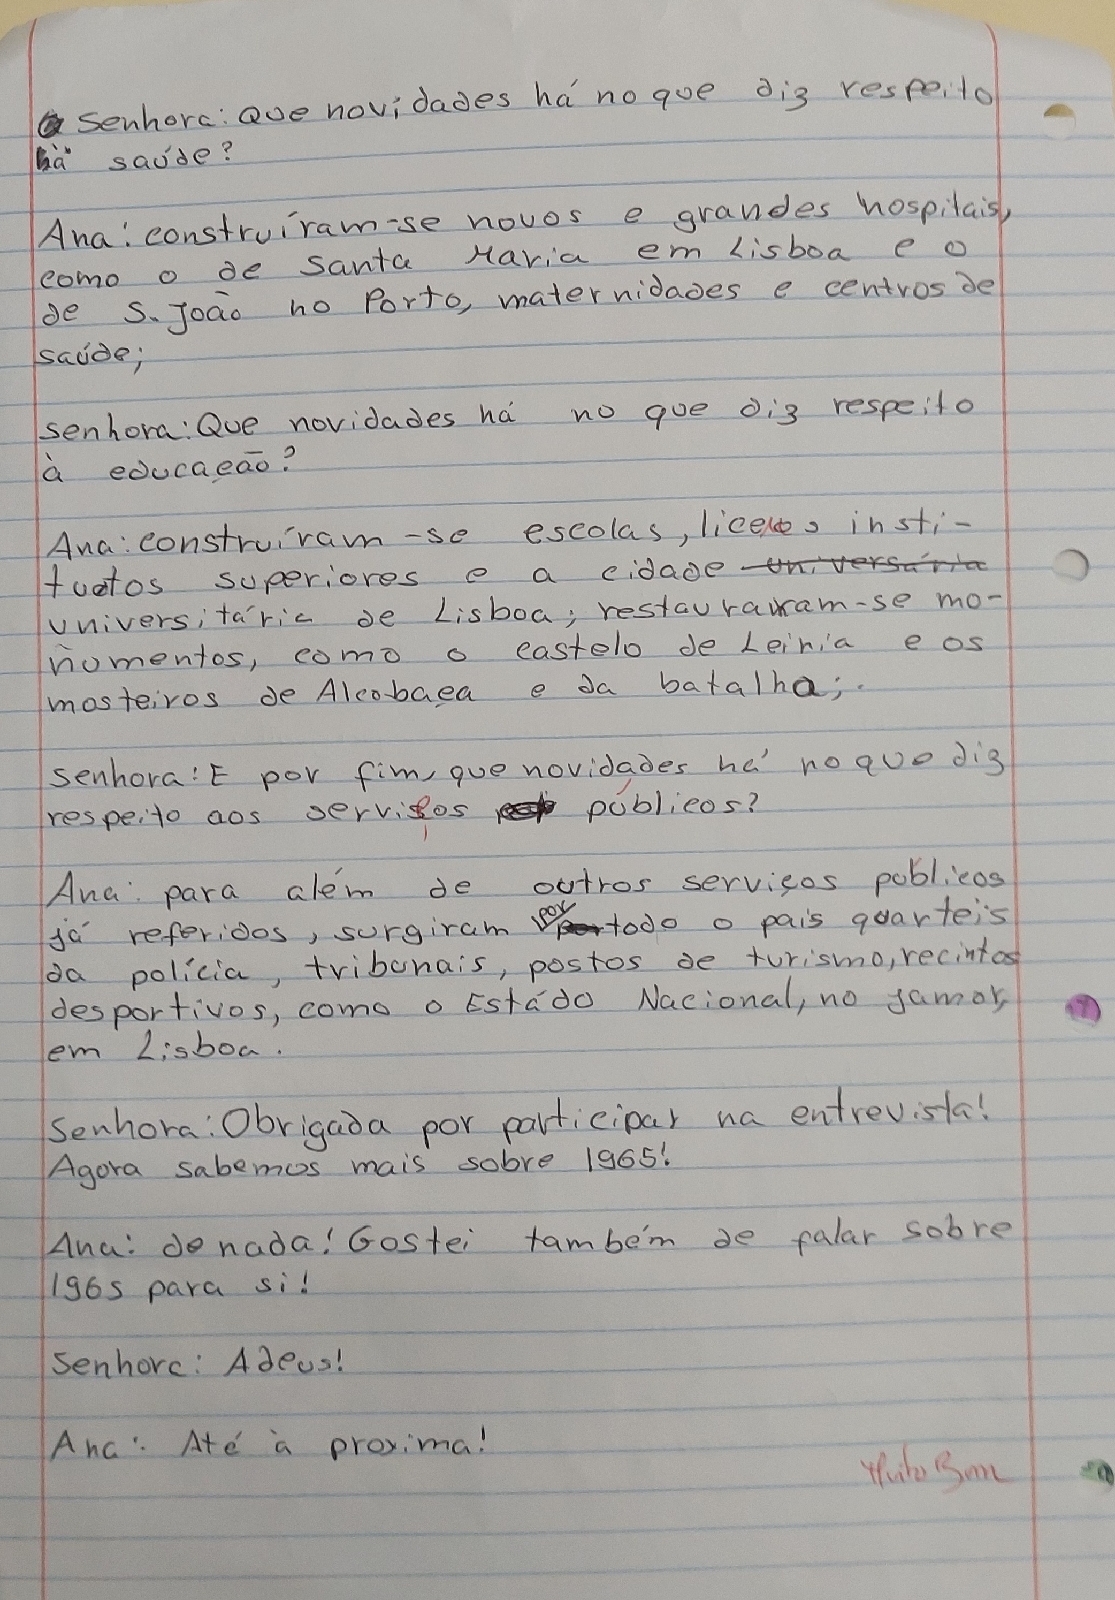 Senhora: Que novidades há no que diz respeito
à saúde?
Ana: construíram-se novos e grandes hospitais,
como o de Santa Maria em Lisboa e o
de S. João no Porto, maternidades e centros de
saúde;
senhora: Que novidades há no que diz respeito
à educação?
Ana: construíram-se escolas, liceus, insti-
tutos superiores e a cidade universária
universitária de Lisboa; restauraram-se mo-
numentos, como o castelo de Leiria e os
mosteiros de Alcobaça e da batalha;.
senhora: E por fim, que novidades há no que diz
respeito aos serviços públicos?
Ana: para além de outros serviços públicos
já referidos, surgiram por todo o país quarteis
da polícia, tribunais, postos de turismo, recintos
desportivos, como o Estádo Nacional, no Jamor,
em Lisboa.
Senhora: Obrigada por participar na entrevista!
Agora sabemos mais sobre 1965!
Ana: de nada! Gostei também de falar sobre
1965 para si!
Senhora: Adeus!
Ana: Até à proxima!
Muito Bom